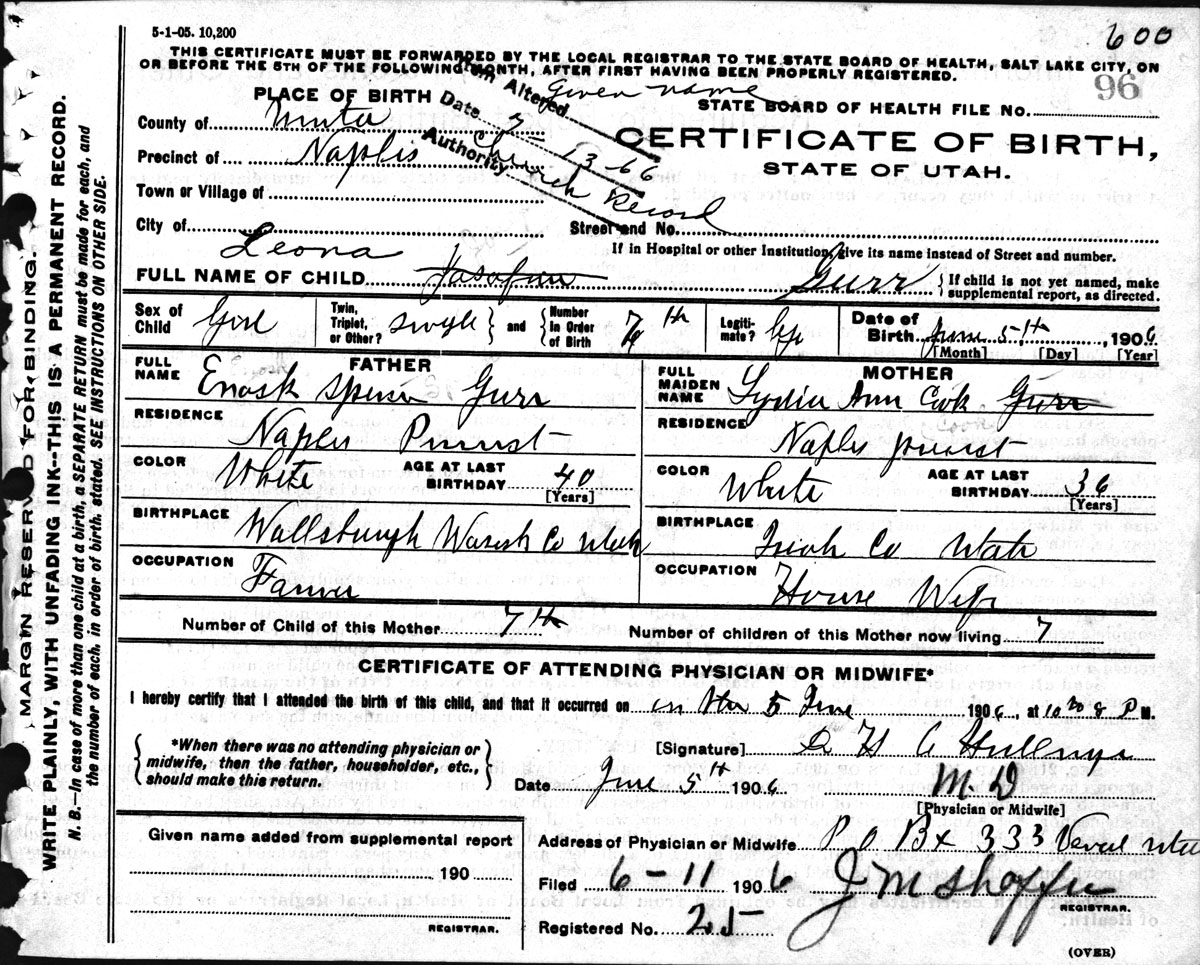 5-1-05. 10,200
600
THIS CERTIFICATE MUST BE FORWARDED BY THE LOCAL REGISTRAR TO THE STATE BOARD OF HEALTH, SALT LAKE CITY, ON
OR BEFORE THE 5TH OF THE FOLLOWING MONTH, AFTER FIRST HAVING BEEN PROPERLY REGISTERED.
96
Altered Given name
Date 7-13-66
Authority Church Record
PLACE OF BIRTH
STATE BOARD OF HEALTH FILE NO.
County of Uinta
CERTIFICATE OF BIRTH,
Precinct of Naples
STATE OF UTAH.
Town or Village of
City of
Street and No.
If in Hospital or other Institution, give its name instead of Street and number.
Leona
FULL NAME OF CHILD Gurr { If child is not yet named, make
supplemental report, as directed.
Sex of Child Girl
Twin, Triplet, or Other? single } and { Number in Order of Birth 7th
Legitimate?
Date of Birth June 5th, 1906
[Month] [Day] [Year]
FATHER
FULL NAME Spencer Gurr
RESIDENCE Naples
COLOR White
AGE AT LAST BIRTHDAY 40
[Years]
BIRTHPLACE Wallsburgh Co Utah
OCCUPATION Farmer
MOTHER
FULL MAIDEN NAME Lydia Ann Cook Gurr
Cook
RESIDENCE Naples
COLOR White
AGE AT LAST BIRTHDAY 36
[Years]
BIRTHPLACE Co Utah
OCCUPATION House Wife
Number of Child of this Mother 7th
Number of children of this Mother now living 7
CERTIFICATE OF ATTENDING PHYSICIAN OR MIDWIFE*
I hereby certify that I attended the birth of this child, and that it occurred on 5 June 1906, at P M.
{ *When there was no attending physician or
midwife, then the father, householder, etc.,
should make this return. }
[Signature]
Date June 5th 1906
M.D
[Physician or Midwife]
Given name added from supplemental report
190
REGISTRAR.
Address of Physician or Midwife P O Bx 333 Utah
Filed 6-11 1906
REGISTRAR.
Registered No. 25
(OVER)
MARGIN RESERVED FOR BINDING.
WRITE PLAINLY, WITH UNFADING INK--THIS IS A PERMANENT RECORD.
N. B.—In case of more than one child at a birth, a SEPARATE RETURN must be made for each, and
the number of each, in order of birth, stated. SEE INSTRUCTIONS ON OTHER SIDE.